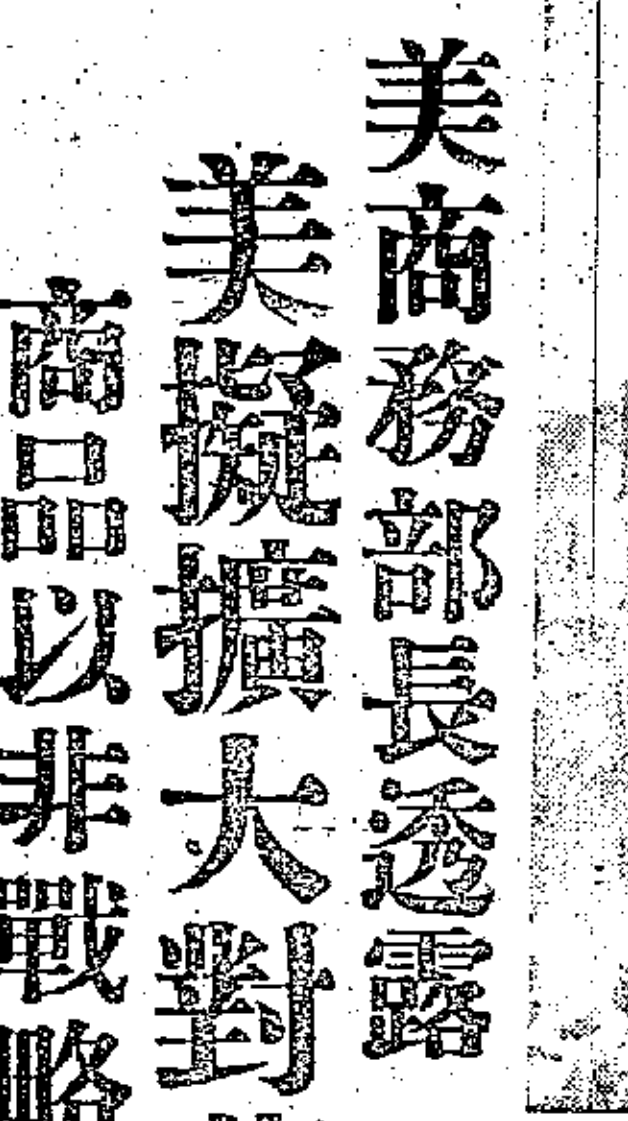 美商務部長透露
美擬擴大對
商品以非戰略